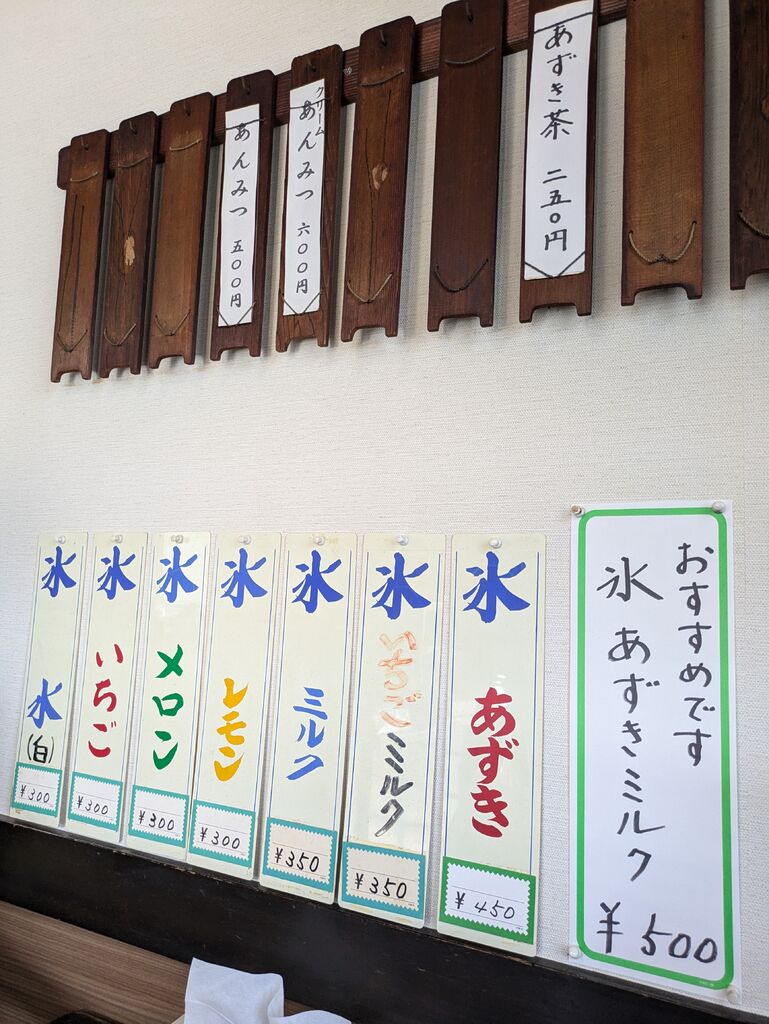 あずき茶 二五〇円
クリーム
あんみつ 六〇〇円
あんみつ 五〇〇円
おすすめです
氷 あずきミルク
¥500
氷 あずき
¥450
氷 いちごミルク
¥350
氷 ミルク
¥350
氷 レモン
¥300
氷 メロン
¥300
氷 いちご
¥300
氷 水(白)
¥300